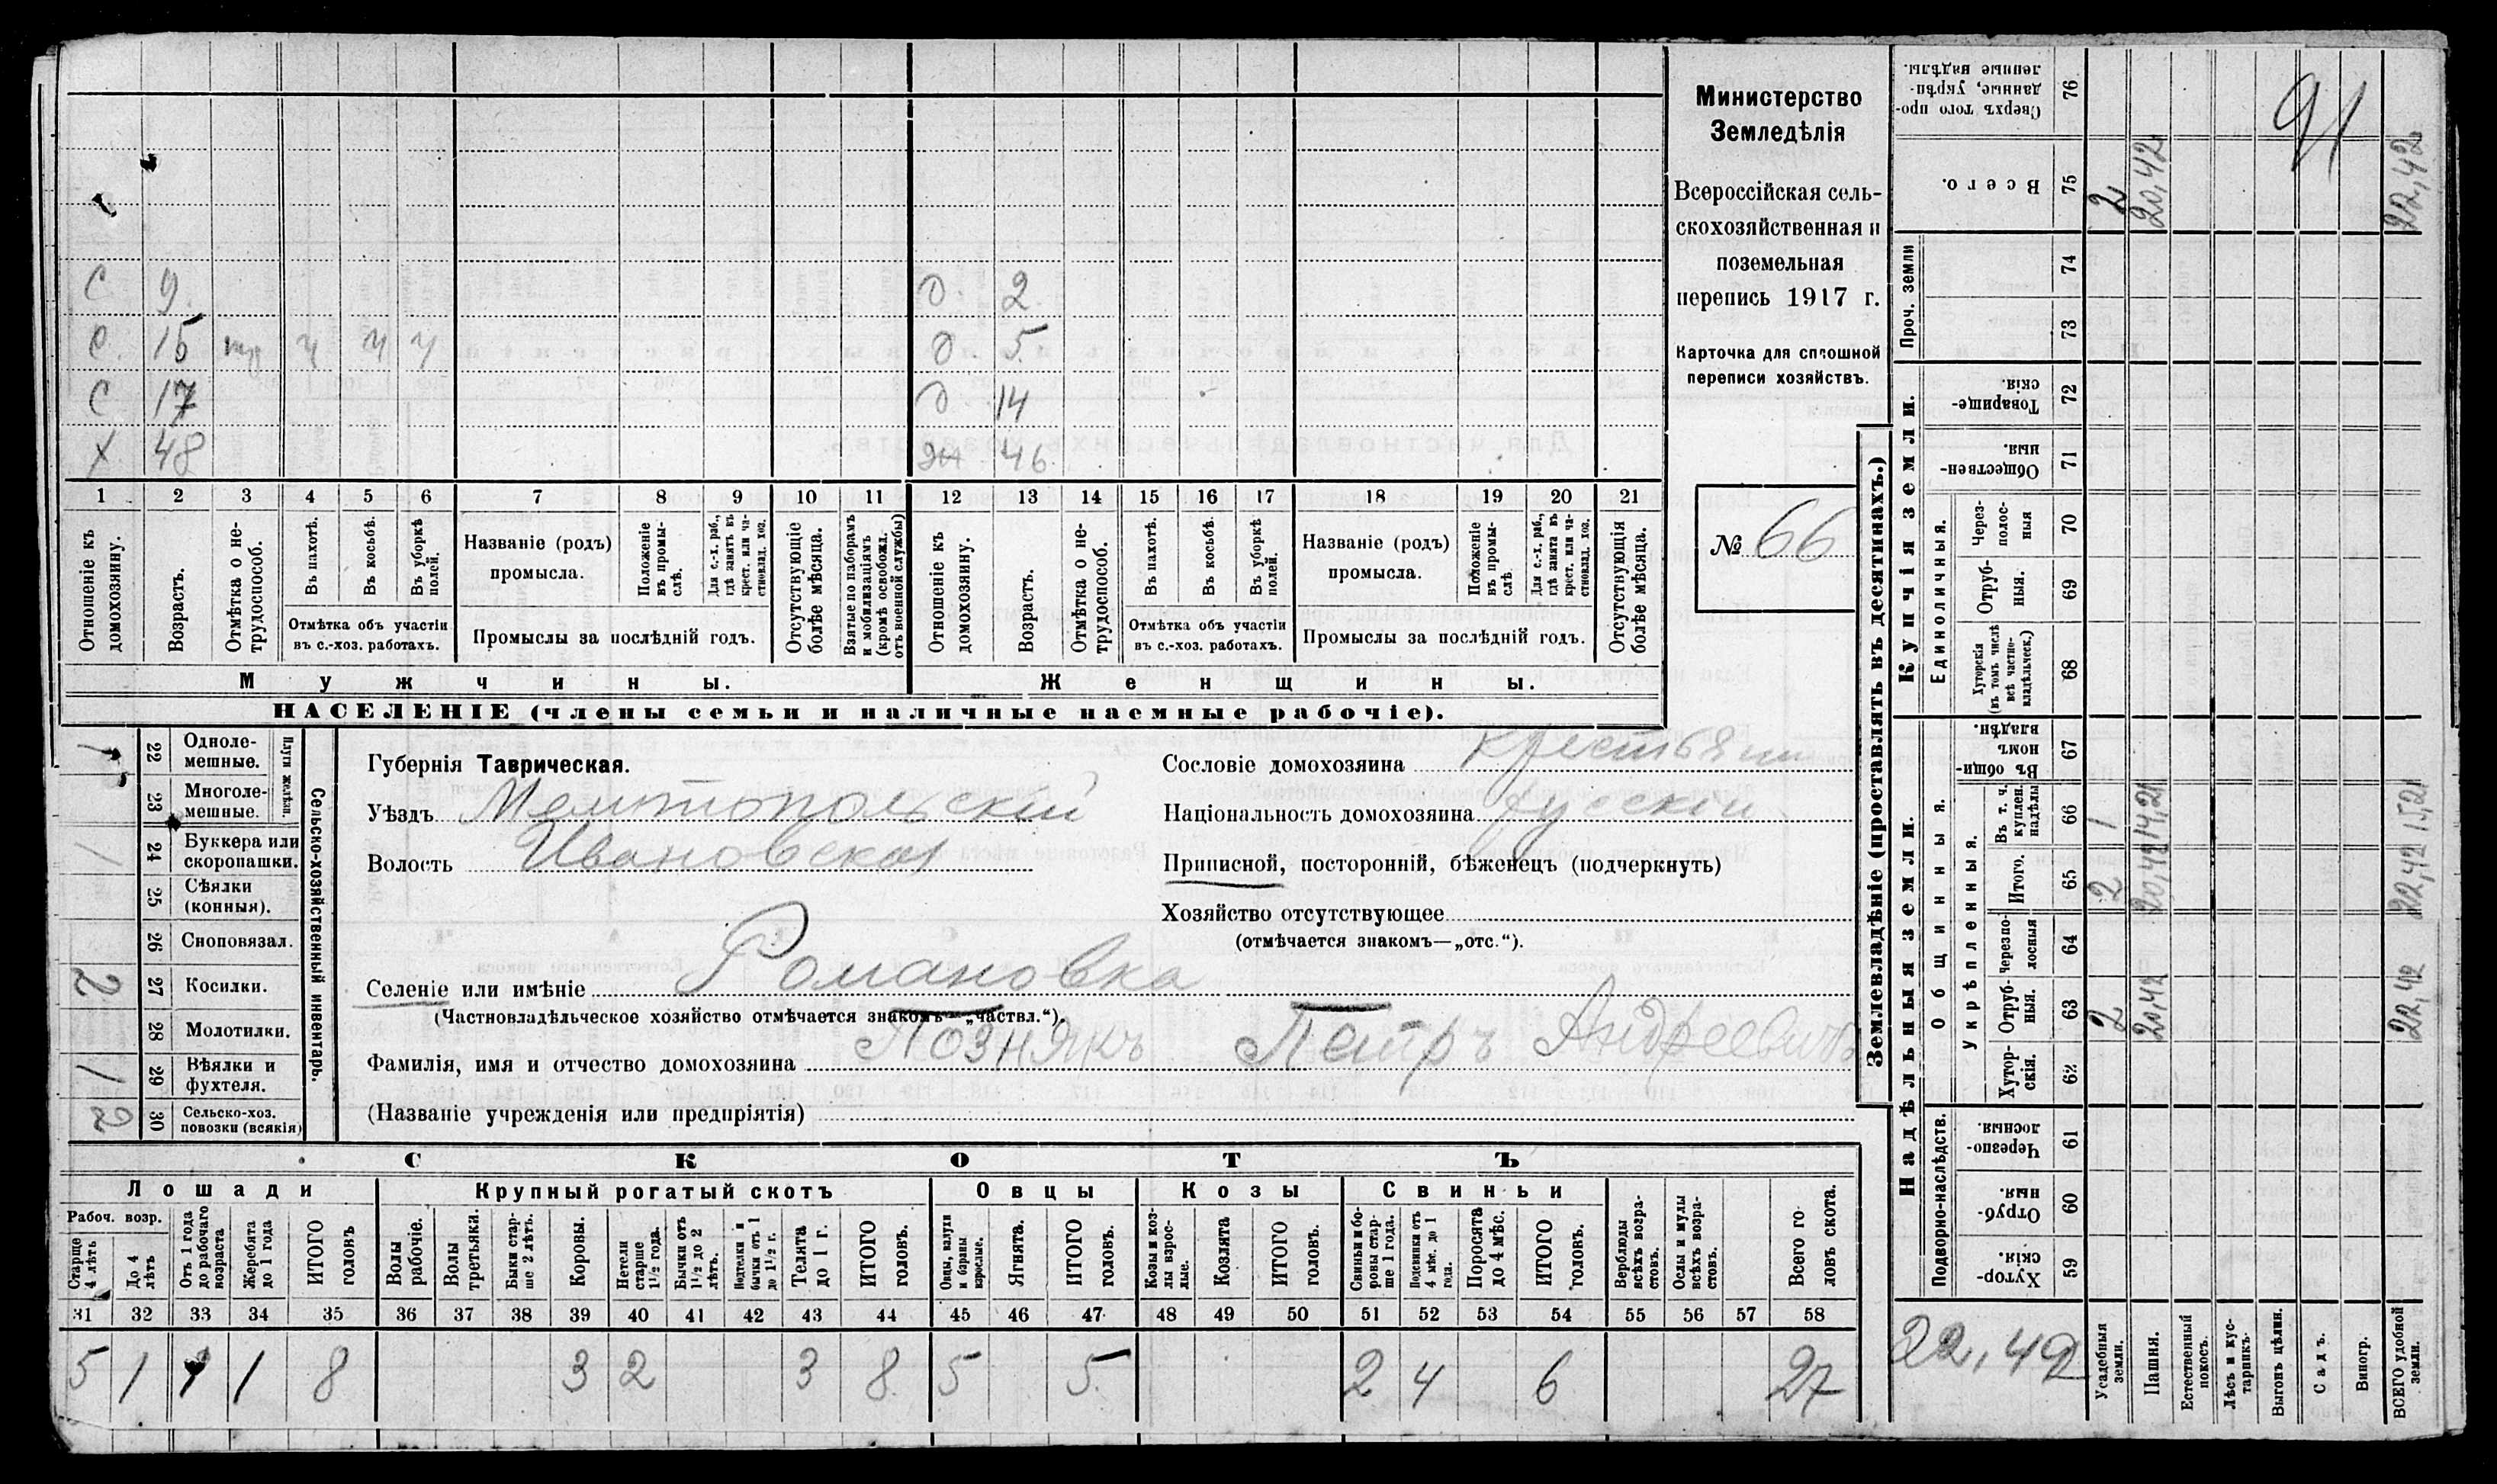 С 9. О. 2.
С. 15 О. 5.
С 17 О. 14
Х 48 жн 46
1 2 3 4 5 6 7 8 9 10 11 12 13 14 15 16 17 18 19 20 21
Отношеніе къ домохозяину.
Возрастъ.
Отмѣтка о не-трудоспособ.
Въ пахотѣ.
Въ косьбѣ.
Въ уборкѣ полей.
Отмѣтка объ участіи
въ с.-хоз. работахъ.
Названіе (родъ)
промысла.
Положеніе въ промы-слѣ.
Для с.-х. раб., гдѣ занятъ въ крест. или ча-стновлад. хоз.
Промыслы за послѣдній годъ.
Отсутствующіе болѣе мѣсяца.
Взятые по наборамъ и мобилизаціямъ (кромѣ освобожд. отъ военной службы)
Отношеніе къ домохозяину.
Возрастъ.
Отмѣтка о не-трудоспособ.
Въ пахотѣ.
Въ косьбѣ.
Въ уборкѣ полей.
Отмѣтка объ участіи
въ с.-хоз. работахъ.
Названіе (родъ)
промысла.
Положеніе въ промы-слѣ
Для с.-х. раб., гдѣ занята въ крест. или ча-стновлад. хоз.
Промыслы за послѣдній годъ.
Отсутствующія болѣе мѣсяца.
Мужчины. Женщины.
НАСЕЛЕНІЕ (члены семьи и наличные наемные рабочіе).
Министерство
Земледѣлія
Всероссійская сель-
скохозяйственная и
поземельная
перепись 1917 г.
Карточка для сплошной
переписи хозяйствъ.
№ 66
Сельско-хозяйственный инвентарь.
Плуги желѣзн.
22 Одноле-мешные.
23 Многоле-мешные.
1 24 Буккера или скоропашки.
25 Сѣялки (конныя).
26 Сноповязал.
2 27 Косилки.
28 Молотилки.
1 29 Вѣялки и фухтеля.
2 30 Сельско-хоз. повозки (всякія)
Губернія Таврическая.
Уѣздъ Мелитопольскій
Волость Ивановская
Селеніе или имѣніе Романовка
(Частновладѣльческое хозяйство отмѣчается знакомъ—„частвл.“)
Фамилія, имя и отчество домохозяина Познякъ Петръ Андреевичъ
(Названіе учрежденія или предпріятія)
Сословіе домохозяина крестьянин
Національность домохозяина русскій
Приписной, посторонній, бѣженецъ (подчеркнуть)
Хозяйство отсутствующее
(отмѣчается знакомъ—„отс.“).
СКОТЪ
Лошади Крупный рогатый скотъ Овцы Козы Свиньи
Рабоч. возр.
Старше 4 лѣтъ
До 4 лѣтъ
Отъ 1 года до рабочаго возраста
Жеребята до 1 года
ИТОГО головъ
Волы рабочіе.
Волы третьяки.
Быки стар-ше 2 лѣтъ.
Коровы.
Нетели старше 1½ года.
Бычки отъ 1½ до 2 лѣтъ.
Подтелки и бычки отъ 1 до 1½ г.
Телята до 1 г.
ИТОГО головъ.
Овцы, валухи и бараны взрослые.
Ягнята.
ИТОГО головъ.
Козы и коз-лы взрос-лые.
Козлята
ИТОГО головъ.
Свиньи и бо-ровы стар-ше 1 года.
Подсвинки отъ 4 мѣс. до 1 года.
Поросята до 4 мѣс.
ИТОГО головъ.
Верблюды всѣхъ возра-стовъ.
Ослы и мулы всѣхъ возра-стовъ.
Всего го-ловъ скота.
31 32 33 34 35 36 37 38 39 40 41 42 43 44 45 46 47 48 49 50 51 52 53 54 55 56 57 58
5 1 1 1 8 3 2 3 8 5 5 2 4 6 27
Землевладѣніе (проставлять въ десятинахъ.)
Купчія земли.
Проч. земли
Надѣльныя земли.
Единоличныя.
Общинныя.
Укрѣпленныя.
Подворно-наслѣдств.
Сверхъ того про-данные, укрѣп-ленные надѣлы. 76
Всего. 75 2 20,42 22,42
91
74
73
Товарище-скія. 72
Обществен-ныя. 71
Через-полос-ныя 70
Отруб-ныя. 69
Хуторскія (въ томъ числѣ всѣ частно-владѣльческ.) 68
Въ общин-номъ владѣн. 67
Въ т. ч. куплен. надѣлы 66 1 14,21 15,21
Итого. 65 2 20,42 22,42
Черезпо-лосныя 64
Отруб-ныя. 63 2 20,42 22,42
Хутор-скія. 62
Черезпо-лосныя. 61
Отруб-ныя. 60
Хутор-скія. 59
22,42
Усадебныя земли.
Пашня.
Естественный покосъ.
Лѣсъ и кус-тарникъ.
Выгонъ цѣлин.
Садъ.
Виногр.
ВСЕГО удобной земли.